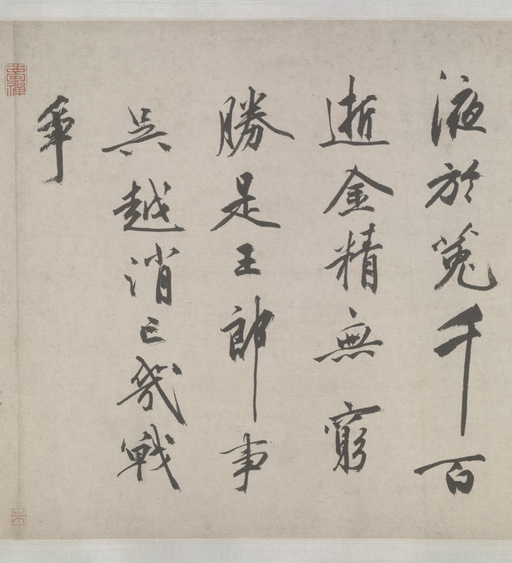 液於菟千百
逝金精無窮
勝是王郎事
吳越消已幾戰
爭